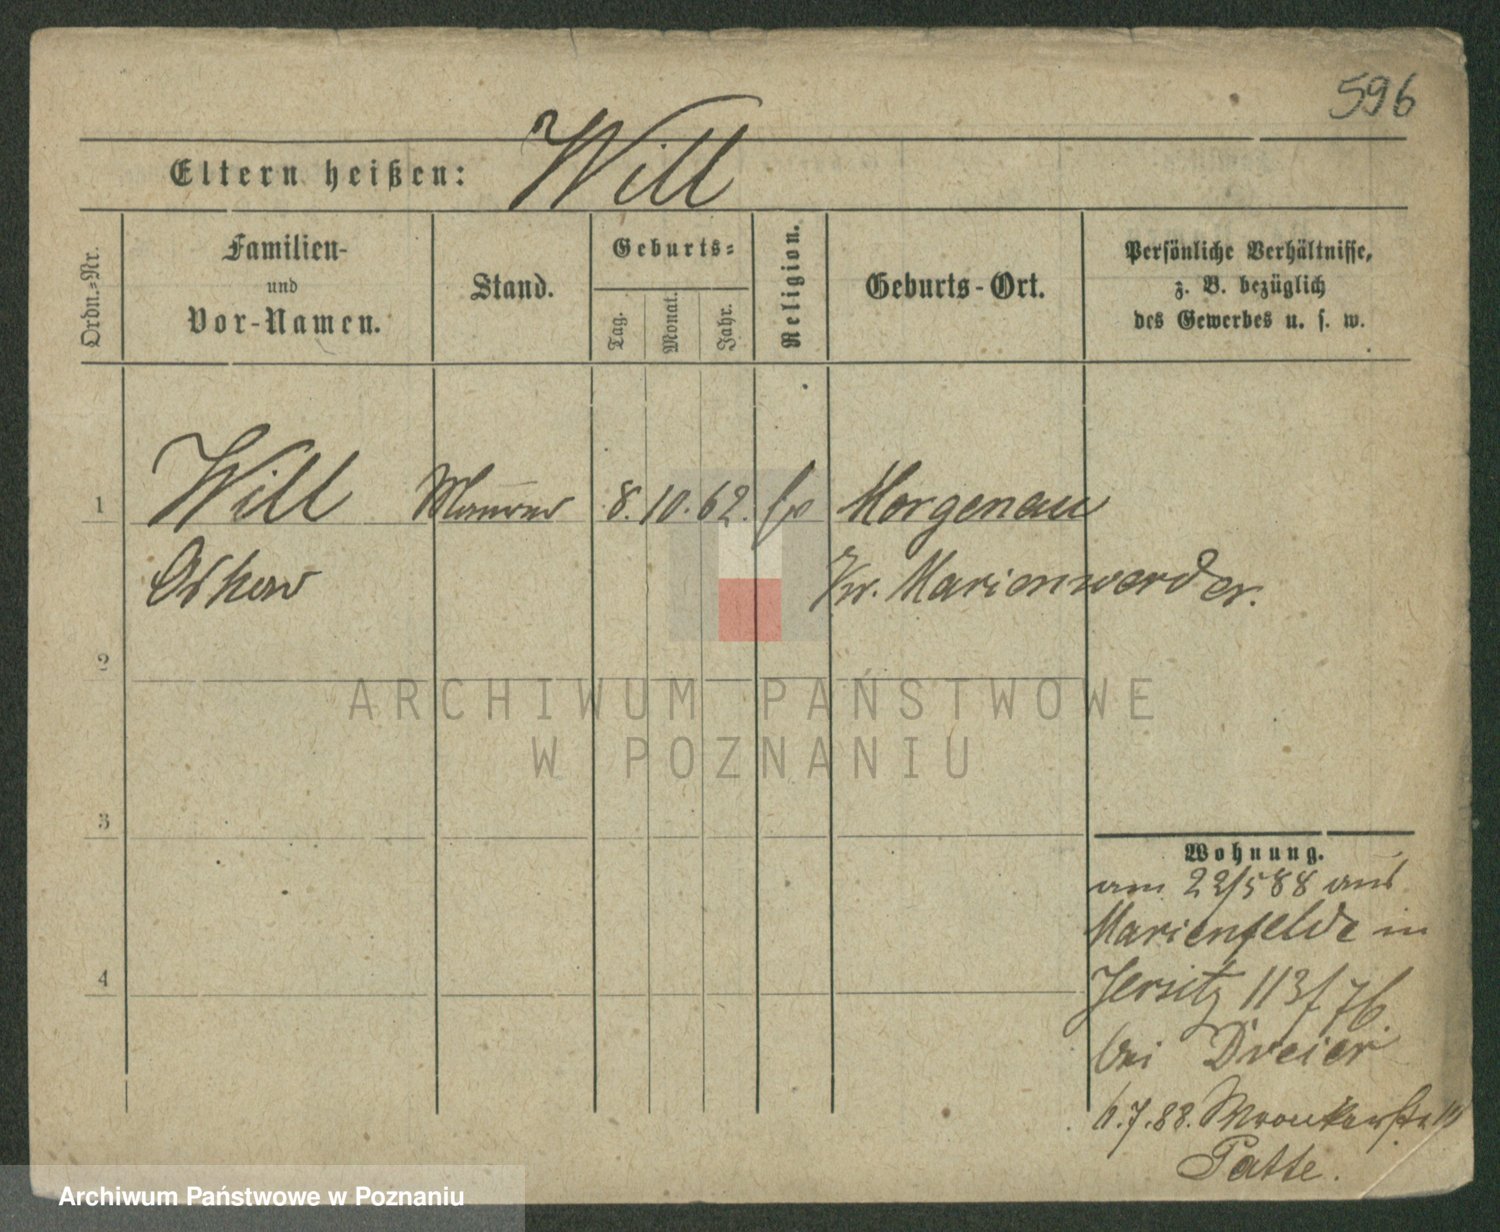 596
Eltern heißen: Will
Ordn.-Nr.
Familien-
und
Vor-Namen.
Stand.
Geburts-
Tag.
Monat.
Jahr.
Religion.
Geburts-Ort.
Persönliche Verhältnisse,
z. B. bezüglich
des Gewerbes u. s. w.
1 Will Maurer 8. 10. 62. Morgenau
Oskar Kr. Marienwerder.
2
3
4
Wohnung.
am 22/5 88 aus
Marienfelde in
Jersitz 113/76
bei Dreier
6.7.88. Wronkerstr.
Patte.
ARCHIWUM PAŃSTWOWE
W POZNANIU
Archiwum Państwowe w Poznaniu